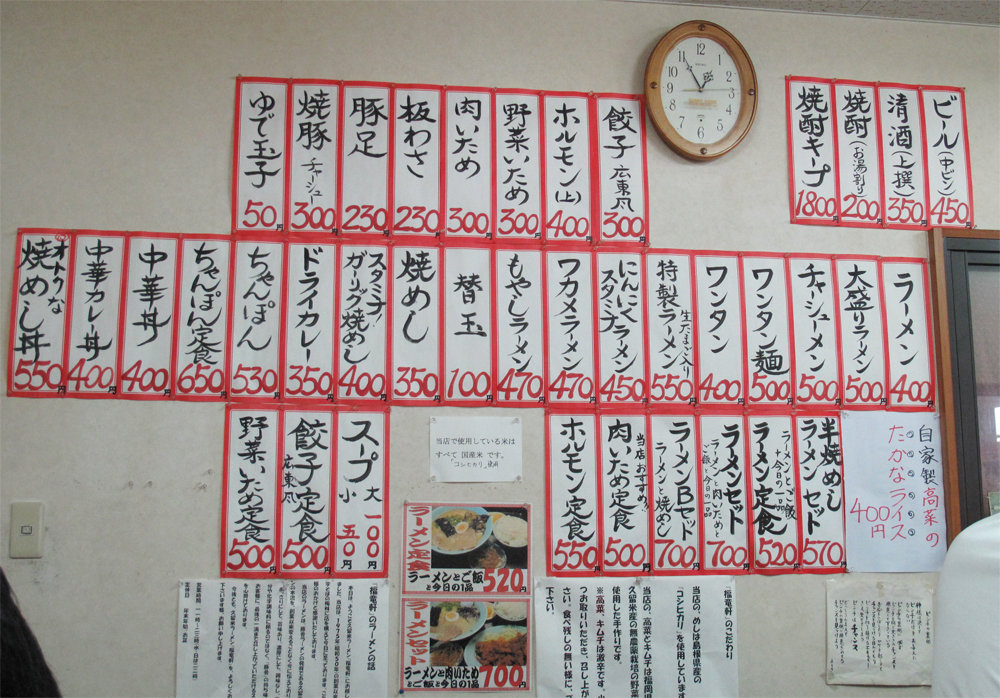 ビール(中ビン) 450円
清酒(上撰) 350円
焼酎(お湯割り) 200円
焼酎キープ 1800円
餃子 広東風 300円
ホルモン(上) 400円
野菜いため 300円
肉いため 300円
板わさ 230円
豚足 230円
焼豚 チャーシュー 300円
ゆで玉子 50円
ラーメン 400円
大盛りラーメン 500円
チャーシューメン 500円
ワンタン麺 500円
ワンタン 400円
特製ラーメン 生たまご入り 550円
にんにくラーメン スタミナ 450円
ワカメラーメン 470円
もやしラーメン 470円
替玉 100円
焼めし 350円
スタミナ! ガーリック焼めし 400円
ドライカレー 350円
ちゃんぽん 530円
ちゃんぽん定食 650円
中華丼 400円
中華カレー丼 400円
オトクな 焼めし丼 550円
自家製高菜の
たかなライス
400円
半焼めし
ラーメンセット 570円
ラーメンとご飯
+今日の一品
ラーメン定食 520円
ラーメンセット
ラーメンと肉いためと
ご飯と今日の一品 700円
ラーメンBセット
ラーメンと焼めし 700円
当店おすすめ!
肉いため定食 500円
ホルモン定食 550円
当店で使用している米は
すべて 国産米 です。
「コシヒカリ」使用
スープ 大 一〇〇円
小 五〇円
餃子定食 広東風 500円
野菜いため定食 500円
ラーメン定食
ラーメンとご飯
と今日の1品 520円
ラーメンセット
ラーメンと肉いため
とご飯と今日の1品 700円
「福竜軒」のこだわり
当店の、めしは島根県産の
「コシヒカリ」を使用しています
当店の、高菜とキムチは福岡県
久留米産の無農薬栽培の野菜
使用した手作りです。
※高菜、キムチは激辛です。
つお取りいただき、召し上が
さい。食べ残しの無い様に、
下さい。
「福竜軒」のラーメンの話